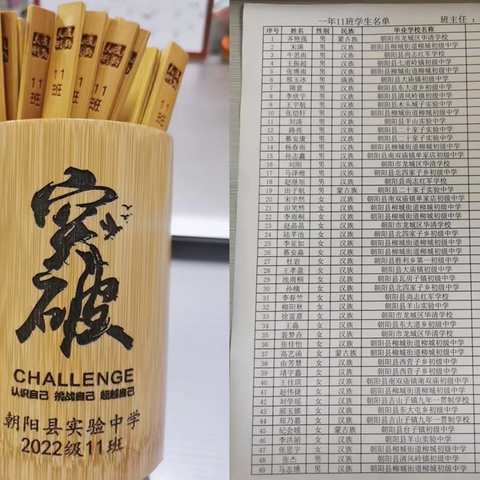 11班
11班
突破
CHALLENGE
认识自己 挑战自己 超越自己
朝阳县实验中学
2022级11班
一年11班学生名单 班主任：
序号 姓名 性别 民族 毕业学校名称
1 男 蒙古族 朝阳市龙城区华清学校
2 宋满 男 汉族 朝阳县柳城街道柳城初级中学
3 男 汉族 朝阳县尚志红军学校
4 王振超 男 汉族 朝阳县七道岭镇初级中学
5 张博雨 男 汉族 朝阳县柳城街道柳城初级中学
6 邢玉冰 男 满族 朝阳县大庙镇初级中学
7 隋意 男 汉族 朝阳县东大道乡初级中学
8 李欣宇 男 汉族 朝阳县清风岭镇初级中学
9 王宇航 男 汉族 朝阳县木头城子实验中学
10 张恺轩 男 汉族 朝阳县柳城街道柳城初级中学
11 刘涛 男 汉族 朝阳县羊山实验中学
12 路亮 男 汉族 朝阳县二十家子实验中学
13 慕安康 男 汉族 朝阳县二十家子实验中学
14 杨春雨 男 汉族 朝阳县柳城街道柳城初级中学
15 孙志鑫 男 汉族 朝阳县南双庙镇单家店初级中学
16 刘刚 男 汉族 朝阳市龙城区华清学校
17 马泽楷 男 汉族 朝阳县北四家子乡初级中学
18 赵继旭 男 汉族 朝阳县尚志红军学校
19 田子航 男 蒙古族 朝阳县二十家子实验中学
20 宋宇然 女 汉族 朝阳县南双庙镇单家店初级中学
21 田笑然 女 汉族 朝阳县柳城街道柳城初级中学
22 李雨桐 女 汉族 朝阳县柳城街道柳城初级中学
23 赵晶晶 女 汉族 朝阳市龙城区华清学校
24 女 汉族 朝阳县北四家子乡初级中学
25 李亚如 女 汉族 朝阳县柳城街道柳城初级中学
26 慕安淼 女 汉族 朝阳县柳城街道柳城初级中学
27 杜岩 女 汉族 朝阳县胜利乡第一初级中学
28 王孝盈 女 汉族 朝阳县大庙镇初级中学
29 池雨桐 女 汉族 朝阳县瓦房子镇初级中学
30 孙楠 女 汉族 朝阳县北四家子乡初级中学
31 李春兰 女 汉族 朝阳县尚志红军学校
32 柳阳秋 女 汉族 朝阳县柳城街道柳城初级中学
33 徐富嘉 女 汉族 朝阳市龙城区华清学校
34 王淼 女 汉族 朝阳县东大道乡初级中学
35 裴梦垚 女 汉族 朝阳市龙城区华清学校
36 张佳怡 女 汉族 朝阳县柳城街道柳城初级中学
37 高艺涵 女 蒙古族 朝阳县柳城街道柳城初级中学
38 由芳慧 女 汉族 朝阳县西营子乡初级中学
39 清宇鑫 女 汉族 朝阳县西营子乡初级中学
40 王佳琪 女 汉族 朝阳县南双庙镇南双庙初级中学
41 赵伟捷 女 汉族 朝阳县柳城街道柳城初级中学
42 刘学瑶 女 汉族 朝阳县古山子镇九年一贯制学校
43 郝玉娜 女 汉族 朝阳县东大屯乡初级中学
44 郑乃嘉 女 汉族 朝阳县古山子镇九年一贯制学校
45 纪会媛 女 蒙古族 朝阳县台子镇初级中学
46 李洪娟 女 汉族 朝阳县羊山实验中学
47 张思宇 女 汉族 朝阳县柳城街道柳城初级中学
48 张杰 男 汉族 朝阳县清风岭镇初级中学
49 马志博 男 汉族 朝阳县柳城街道柳城初级中学